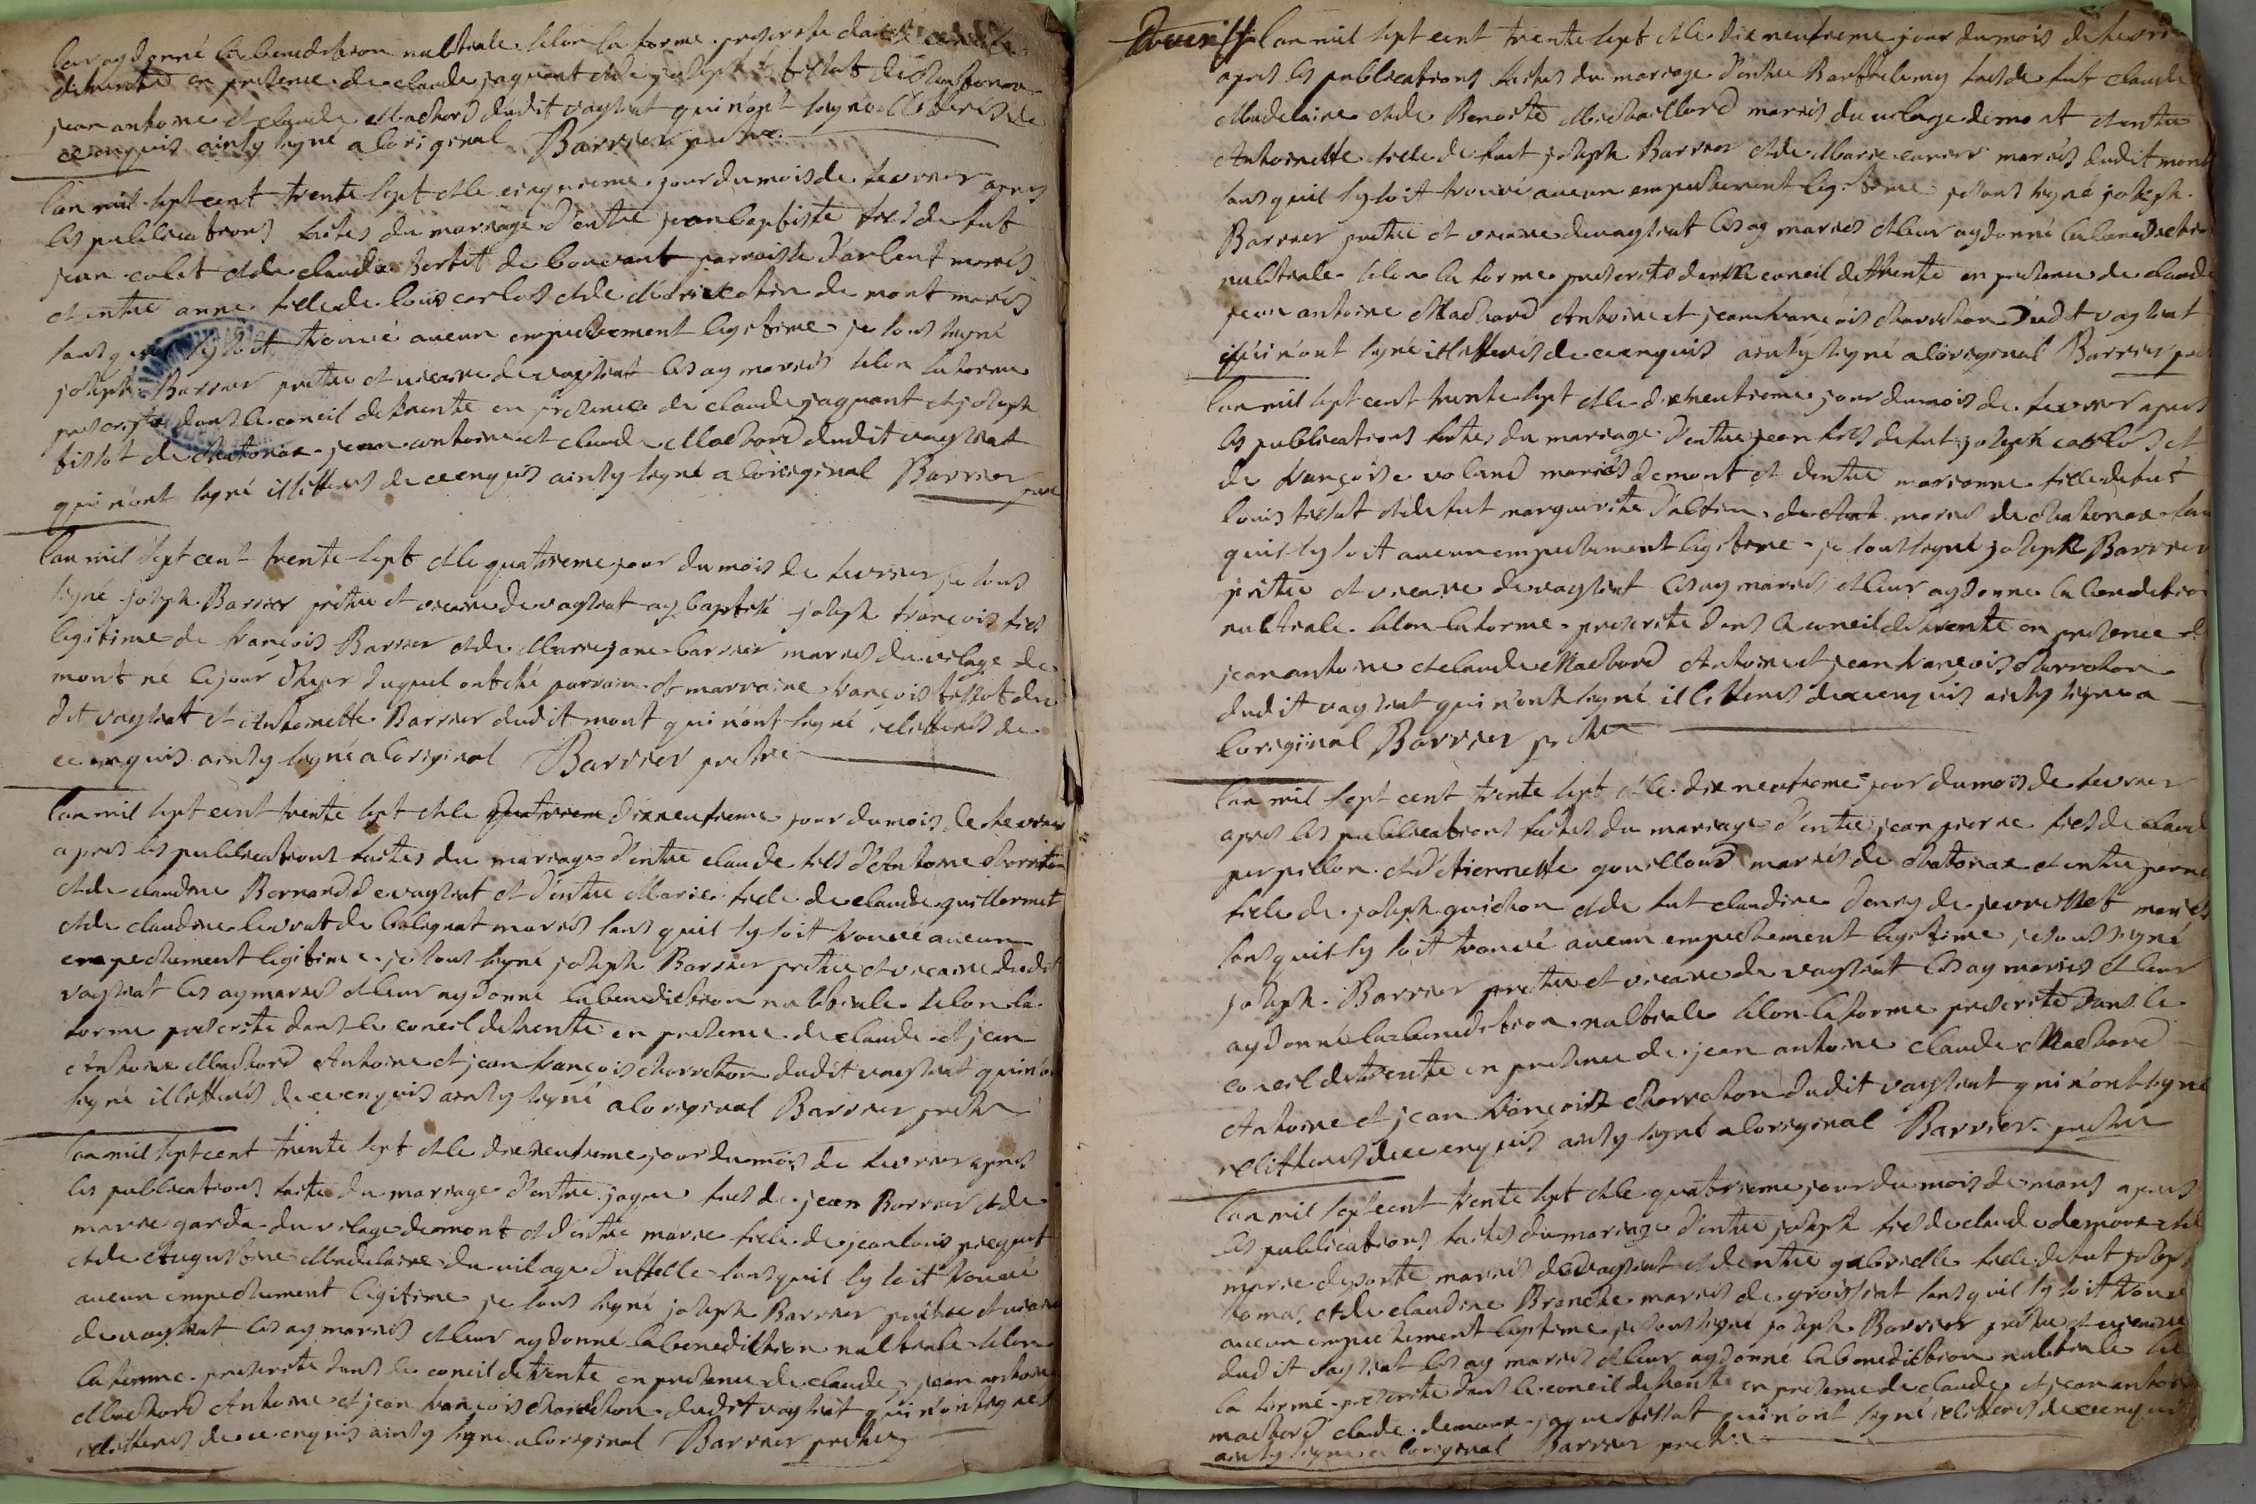 leur ay donné la benediction nubtiale selon la forme prescrite dans le concile
detrente en presence de claude jaquant et de joseph tissot de chatonax
jean antoine et claude Machard dudit vaysiat qui n'ont signé illiterés de
ce enquis ainsy signé a loriginal Barrier prestre
l'an mil sept cent trente sept et le cinquieme jour du mois de fevrier apres
les publications faites du mariage d'entre jean baptiste fils de fut
jean colet et de claudaz tortet de bouvant parroisse d'arbent mariés
et entre anne fille de louis carlos et de de mont mariés
sans quil sy soit trouvé aucun empechement legitime je sous signé
joseph Barrier prestre et vicaire de vaysiat les ay mariés selon la forme
prescrite dans le concil de trente en presence de claude jaquant et joseph
tissot de chatonax jean antoine et claude Machard dudit vaysiat
qui n'ont signé illitterés de ce enquis ainsy signé a loriginal Barrier pre
l'an mil sept cent trente sept et le quatrieme jour du mois de fevrier je sous
signé joseph Barrier prestre et vicaire de vaysiat ay baptisé joseph françois fils
legitime de françois Barrier et de Marie jane barrier mariés du vilage de
mont né le jour d'hyer duquel ont été parrain et marraine françois tissot du
dit vaysiat et Anthoinette Barrier dudit mont qui n'ont signé illitterés de
ce enquis ainsy signé a loriginal Barrier prestre
l'an mil sept cent trente sept et le quatrieme dixneufieme jour du mois de fevrier
apres les publications faites du mariage d'entre claude fils d'Antoine charreton
et de claudine Bernard de vaysiat et d'entre Marie fille de claude guillermet
et de claudine levrat de bolognat mariés sans quil sy soit trouvé aucun
empechement legitime je sous signé joseph Barrier prestre et vicaire dudit
vaysiat les ay mariés et leur ay donné la benediction nubtiale selon la
forme prescrite dans le concil de trente en presence de claude et jean
Antoine Machard Antoine et jean françois charreton dudit vaysiat qui n'ont
signé illitterés de ce enquis ainsy signé a loriginal Barrier prestre
l'an mil sept cent trente sept et le dixneufieme jour du mois de fevrier apres
les publications faites du mariage d'entre jaque fils de jean Barrier et de
marie garda du vilage de mont et d'entre marie fille de jean louis
et de Augustine Madelaine du vilage d'uffelle sans quil sy soit trouvé
aucun empechement legitime je sous signé joseph Barrier prestre et vicaire
de vaysiat les ay mariés et leur ay donné la benediction nubtiale selon
la forme prescrite dans le concil de trente en presence de claude jean antoine
Machard Antoine et jean françois charreton dudit vaysiat qui n'ont signés
illitterés de ce enquis ainsy signé a loriginal Barrier prestre
l'an mil sept cent trente sept et le dix neufieme jour du mois de fevrier
apres les publications faites du mariage d'entre Barthelemy fils de fut claude
Madelaine et de Benoite Michaillard mariés du vilage de mont et entre
Anthoinette fille de fut joseph Barrier et de Marie mariés dudit mont
sans quil sy soit trouvé aucun empechement legitime je sous signé joseph
Barrier prestre et vicaire de vaysiat les ay mariés et leur ay donné la benediction
nubtiale selon la forme prescrite dans le concil de trente en presence de claude
jean antoine Machard Antoine et jean françois charreton dudit vaysiat
qui n'ont signé illitterés de ce enquis ainsy signé a loriginal Barrier pre
l'an mil sept cent trente sept et le dixneufieme jour du mois de fevrier apres
les publications faites du mariage d'entre jean fils de fut joseph carlos et
de françoise voland mariés de mont et d'entre marianne fille de fut
louis tissot et de fut marguerite d'alban mariés de chatonax sans
quil sy soit aucun empechement legitime je sous signé joseph Barrier
prestre et vicaire de vaysiat les ay mariés et leur ay donné la benediction
nubtiale selon la forme prescrite dans le concil de trente en presence de
jean antoine et claude Machard Antoine et jean françois charreton
dudit vaysiat qui n'ont signé illitterés de ce enquis ainsy signé a
loriginal Barrier prestre
l'an mil sept cent trente sept et le dix neufieme jour du mois de fevrier
apres les publications faites du mariage d'entre jean pierre fils de claude
perpillon et d'etiennette gouilloud mariés de chatonax et entre
fille de joseph guichon et de fut claudine de jeurisset mariés
sans quil sy soit trouvé aucun empechement legitime je sous signé
joseph Barrier prestre et vicaire de vaysiat les ay mariés et leur
ay donné la benediction nubtiale selon la forme prescrite dans le
concil de trente en presence de jean antoine claude Machard
Antoine et jean françois charreton dudit vaysiat qui n'ont signé
illitterés de ce enquis ainsy signé a loriginal Barrier prestre
l'an mil sept cent trente sept et le quatrieme jour du mois de mars apres
les publications faites du mariage d'entre joseph fils de claude demoux et de
marie deporte mariés de vaysiat et d'entre gabrielle fille de fut joseph
tomas et de claudine Branche mariés de groissiat sans quil sy soit trouvé
aucun empechement legitime je sous signé joseph Barrier prestre et vicaire
dudit vaysiat les ay mariés et leur ay donné la benediction nubtiale selon
la forme prescrite dans le concil de trente en presence de claude et jean antoine
machard claude demoux jaque tissot qui n'ont signé illitterés de ce enquis
ainsy signé a loriginal Barrier prestre